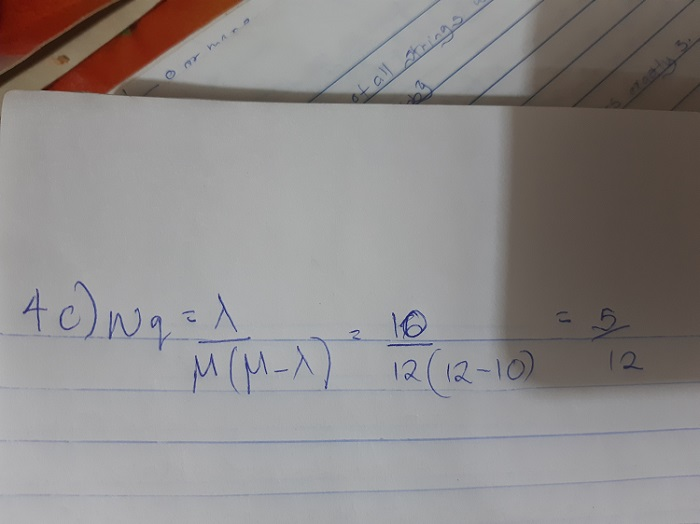 of all strings
exactly 3.
4c) Wq = λ / μ(μ-λ) = 10 / 12(12-10) = 5 / 12